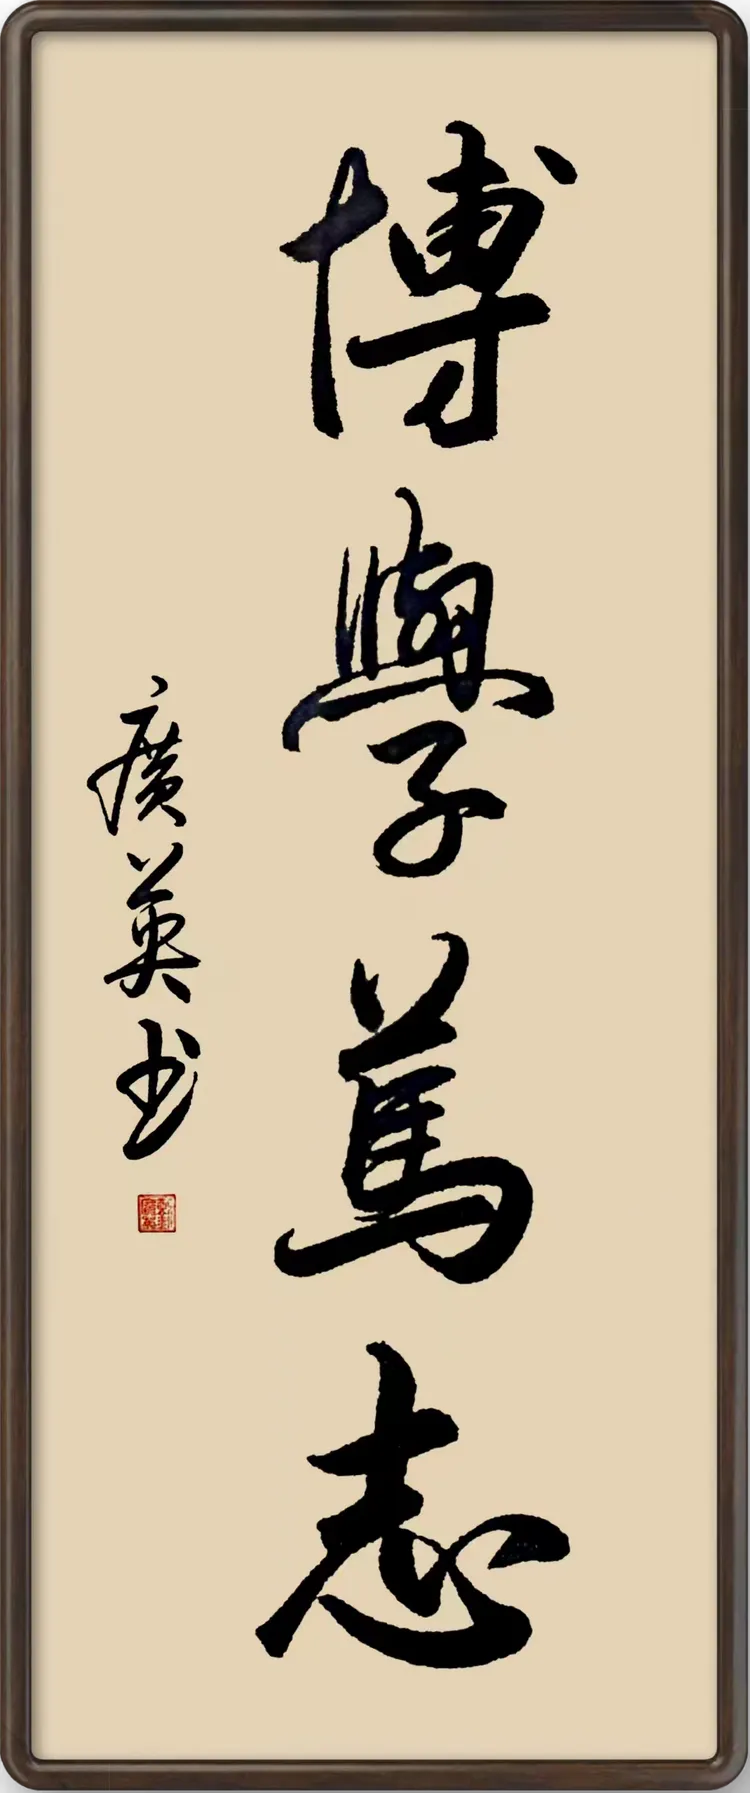 博學篤志
廣英书